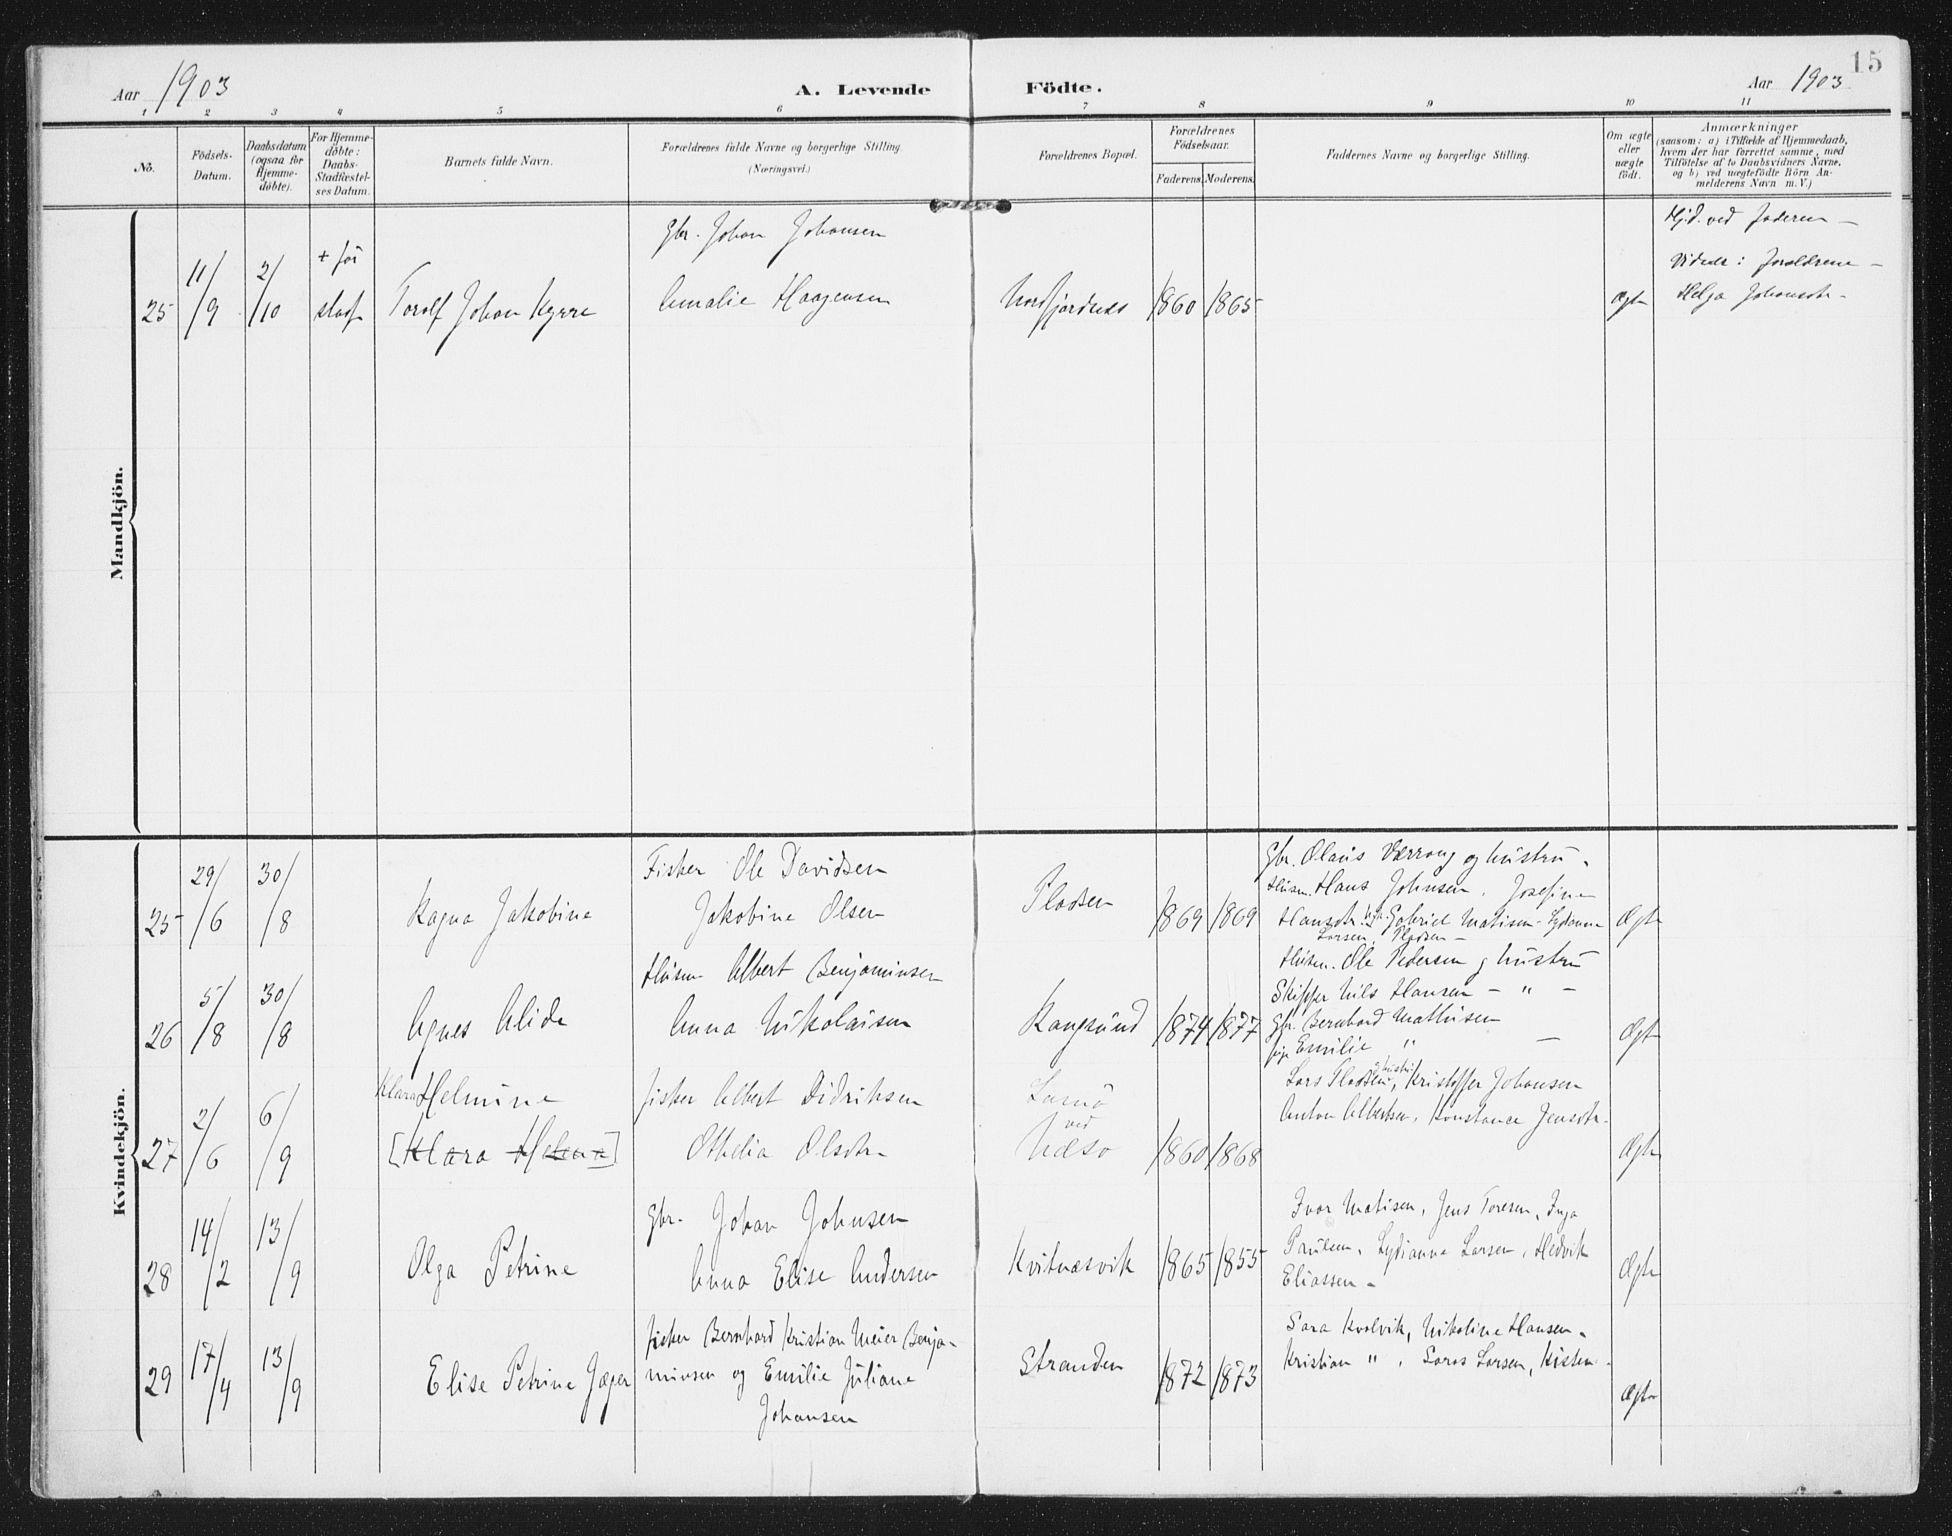 15
Aar 1903 A. Levende Födte. Aar 1903
1 2 3 4 5 6 7 8 9 10 11
No.
Födsels-
Datum.
Daabsdatum
(ogsaa for
Hjemme-
døbte).
For Hjemme-
døbte:
Daabs-
Stadfæstel-
ses Datum.
Barnets fulde Navn.
Forældrenes fulde Navne og borgerlige Stilling.
(Næringsvei.)
Forældrenes Bopæl.
Forældrenes
Födselsaar.
Faderens. Moderens.
Faddernes Navne og borgerlige Stilling.
Om ægte
eller
uægte
födt.
Anmærkninger
(saasom: a) i Tilfælde af Hjemmedaab,
hvem der har forrettet samme, med
Tilföielse af to Daabsvidners Navne,
og b) ved uægtefödte Börn An-
melderens Navn m. V.)
Mandkjön.
25 11/9 2/10
+ før
stadf
Torolf Johan Kyrre
Gbr. Johan Johansen
Amalie Haagensen
Nordfjordnes 1860 1865
Ægte
Hj.d. ved faderen –
Vidner: forældrene –
Helga Johansdtr.
Kvindekjön.
25 29/6 30/8 Ragna Jakobine
Fisker Ole Davidsen
Jakobine Olsen
Pladsen 1869 1869
Gbr. Olaus Værrang og hustru.
Husm. Hans Johnsen. Josefine
Hansdtr. Gabriel Matisen. Lydianna
Larsen, Pladsen –
Ægte
26 5/8 30/8 Agnes Alide
Husm Albert Benjaminsen
Anna Nikolaisen
Rangsund 1874 1877
Husm. Ole Pedersen g hustru
Skipper Nils Hansen – " –
Gbr. Bernhard Mathisen
pige Emilie " –
Ægte
27 2/6 6/9
Klara Helmine
[Klara Helena]
fisker Albert Didriksen
Othelia Olsdtr.
ved
1860 1868
Lars Pladsen g hustru, Kristoffer Johansen
Anton Albertsen, Konstance Jensdtr.
Ægte
28 14/2 13/9 Olga Petrine
Gbr. Johan Johnsen
Anna Elise Andersen
Kvitnæsvik 1865 1855
Ivar Matisen, Jens Toresen, Inga
Paulsen, Lydianna Larsen, Hedvik
Eliassen –
Ægte
29 17/4 13/9 Elise Petrine Jæger
fisker Bernhard Kristian Meier Benja-
minsen og Emilie Juliane
Johansen
Stranden 1872 1873
Sara Kvalvik, Nikoline Hansen.
Kristian ", Lars Larsen,
Ægte